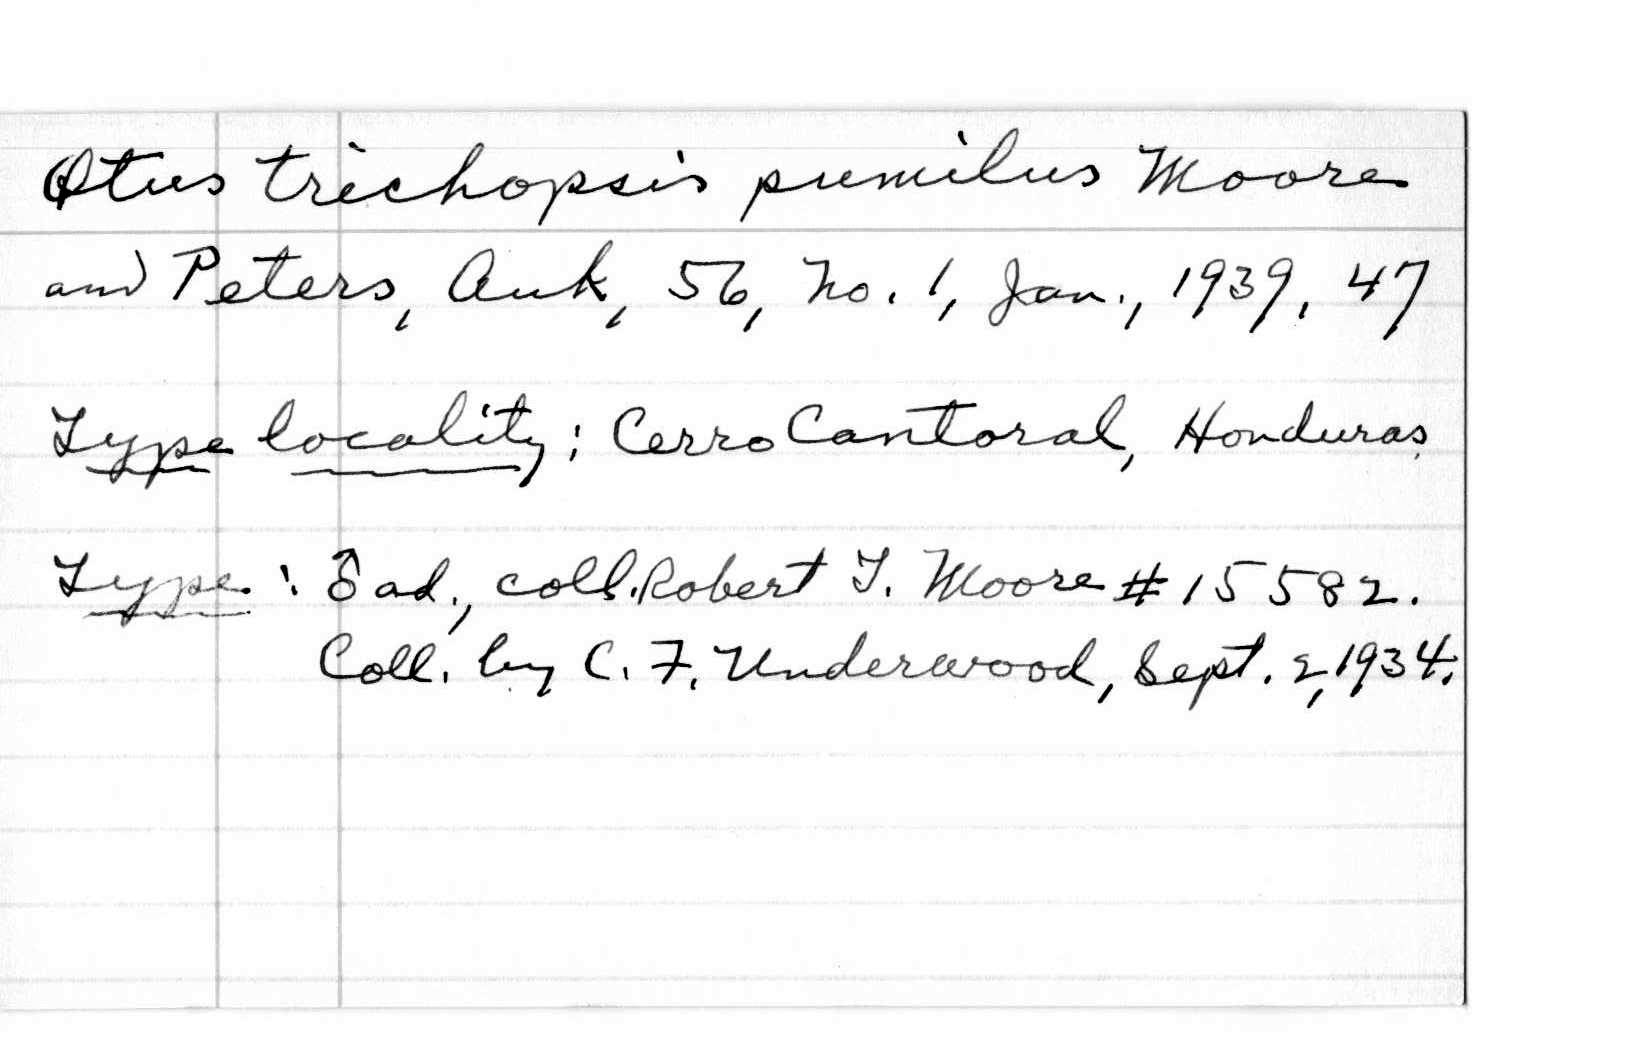 Otus trichopsis pumilus Moore
and Peters, Auk, 56, No. 1, Jan., 1939, 47
Type locality; Cerro Cantoral, Honduras.
Type: ♂ ad., coll. Robert T. Moore # 15582.
Coll. by C. F. Underwood, Sept. 2, 1934.